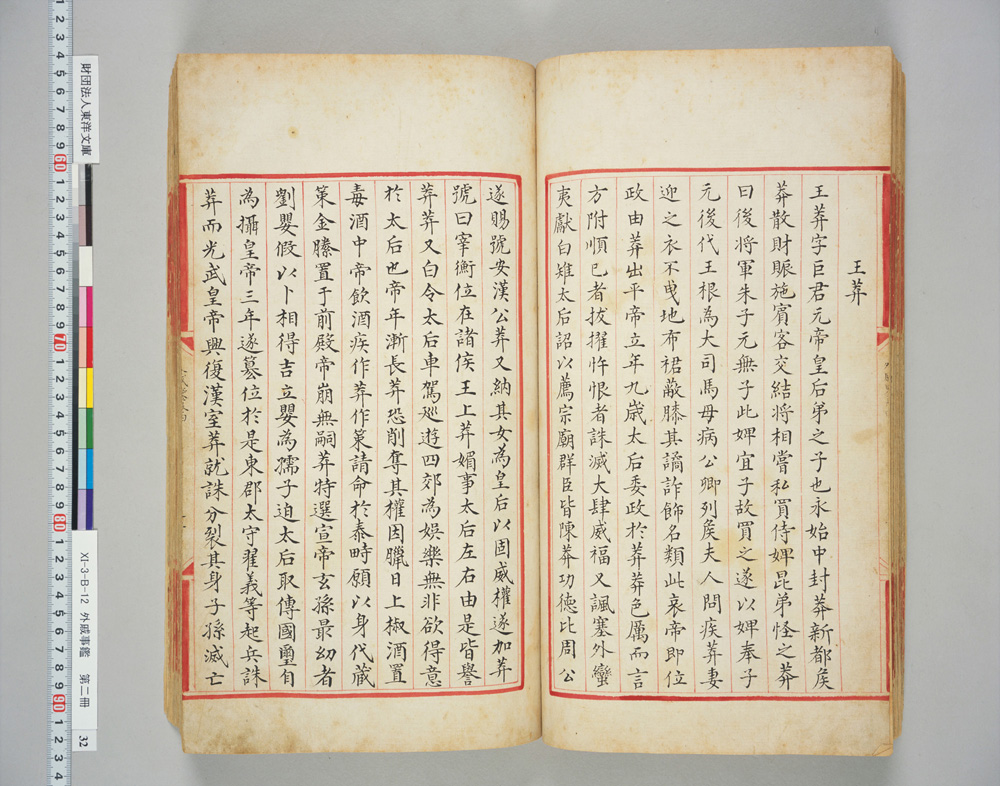 王莽
王莽字巨君元帝皇后弟之子也永始中封莽新都矦
莽散財賑施賓客交結将相嘗私買侍婢昆弟怪之莽
曰後将軍朱子元無子此婢宜子故買之遂以婢奉子
元後代王根為大司馬母病公卿列矦夫人問疾莽妻
迎之衣不曳地布裙蔽膝其譎詐飾名類此哀帝即位
政由莽出平帝立年九歲太后委政於莽莽色厲而言
方附順已者拔擢忤恨者誅滅大肆威福又諷塞外蠻
夷獻白雉太后詔以薦宗廟群臣皆陳莽功德比周公
遂賜號安漢公莽又納其女為皇后以固威權遂加莽
號曰宰衡位在諸侯王上莽媚事太后左右由是皆譽
莽莽又白令太后車駕廵遊四郊為娛樂無非欲得意
於太后也帝年漸長莽恐削奪其權因臘日上椒酒置
毒酒中帝飲酒疾作莽作策請命於泰畤願以身代藏
策金縢置于前殿帝崩無嗣莽特選宣帝玄孫最幼者
劉嬰假以卜相得吉立嬰為孺子迫太后取傳國璽自
為攝皇帝三年遂篡位於是東郡太守翟義等起兵誅
莽而光武皇帝興復漢室莽就誅分裂其身子孫滅亡
財団法人東洋文庫
XI-3-B-12 外戚事鑑 第二冊 32